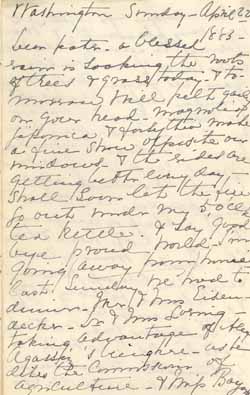 Washington Sunday - April 22
1883 -
Dear Kate. a blessed
rain is soaking the roots
of trees & grass today. & to-
morrow will pelt
on your head - magnolias
japonica & forsythia make
a fine show opposite our
windows & the sides are
getting better every day -
Shall soon let the fire
go out under my 5 oclk
tea kettle. & say Good
bye proud world, I'm
going away from
last. Sunday we had to
dinner. Mr. & Mrs
Dr & Mrs Loring -
taking advantage of Alex
Agassiz's here - as he
the Commissioner of
Agriculture - & Miss